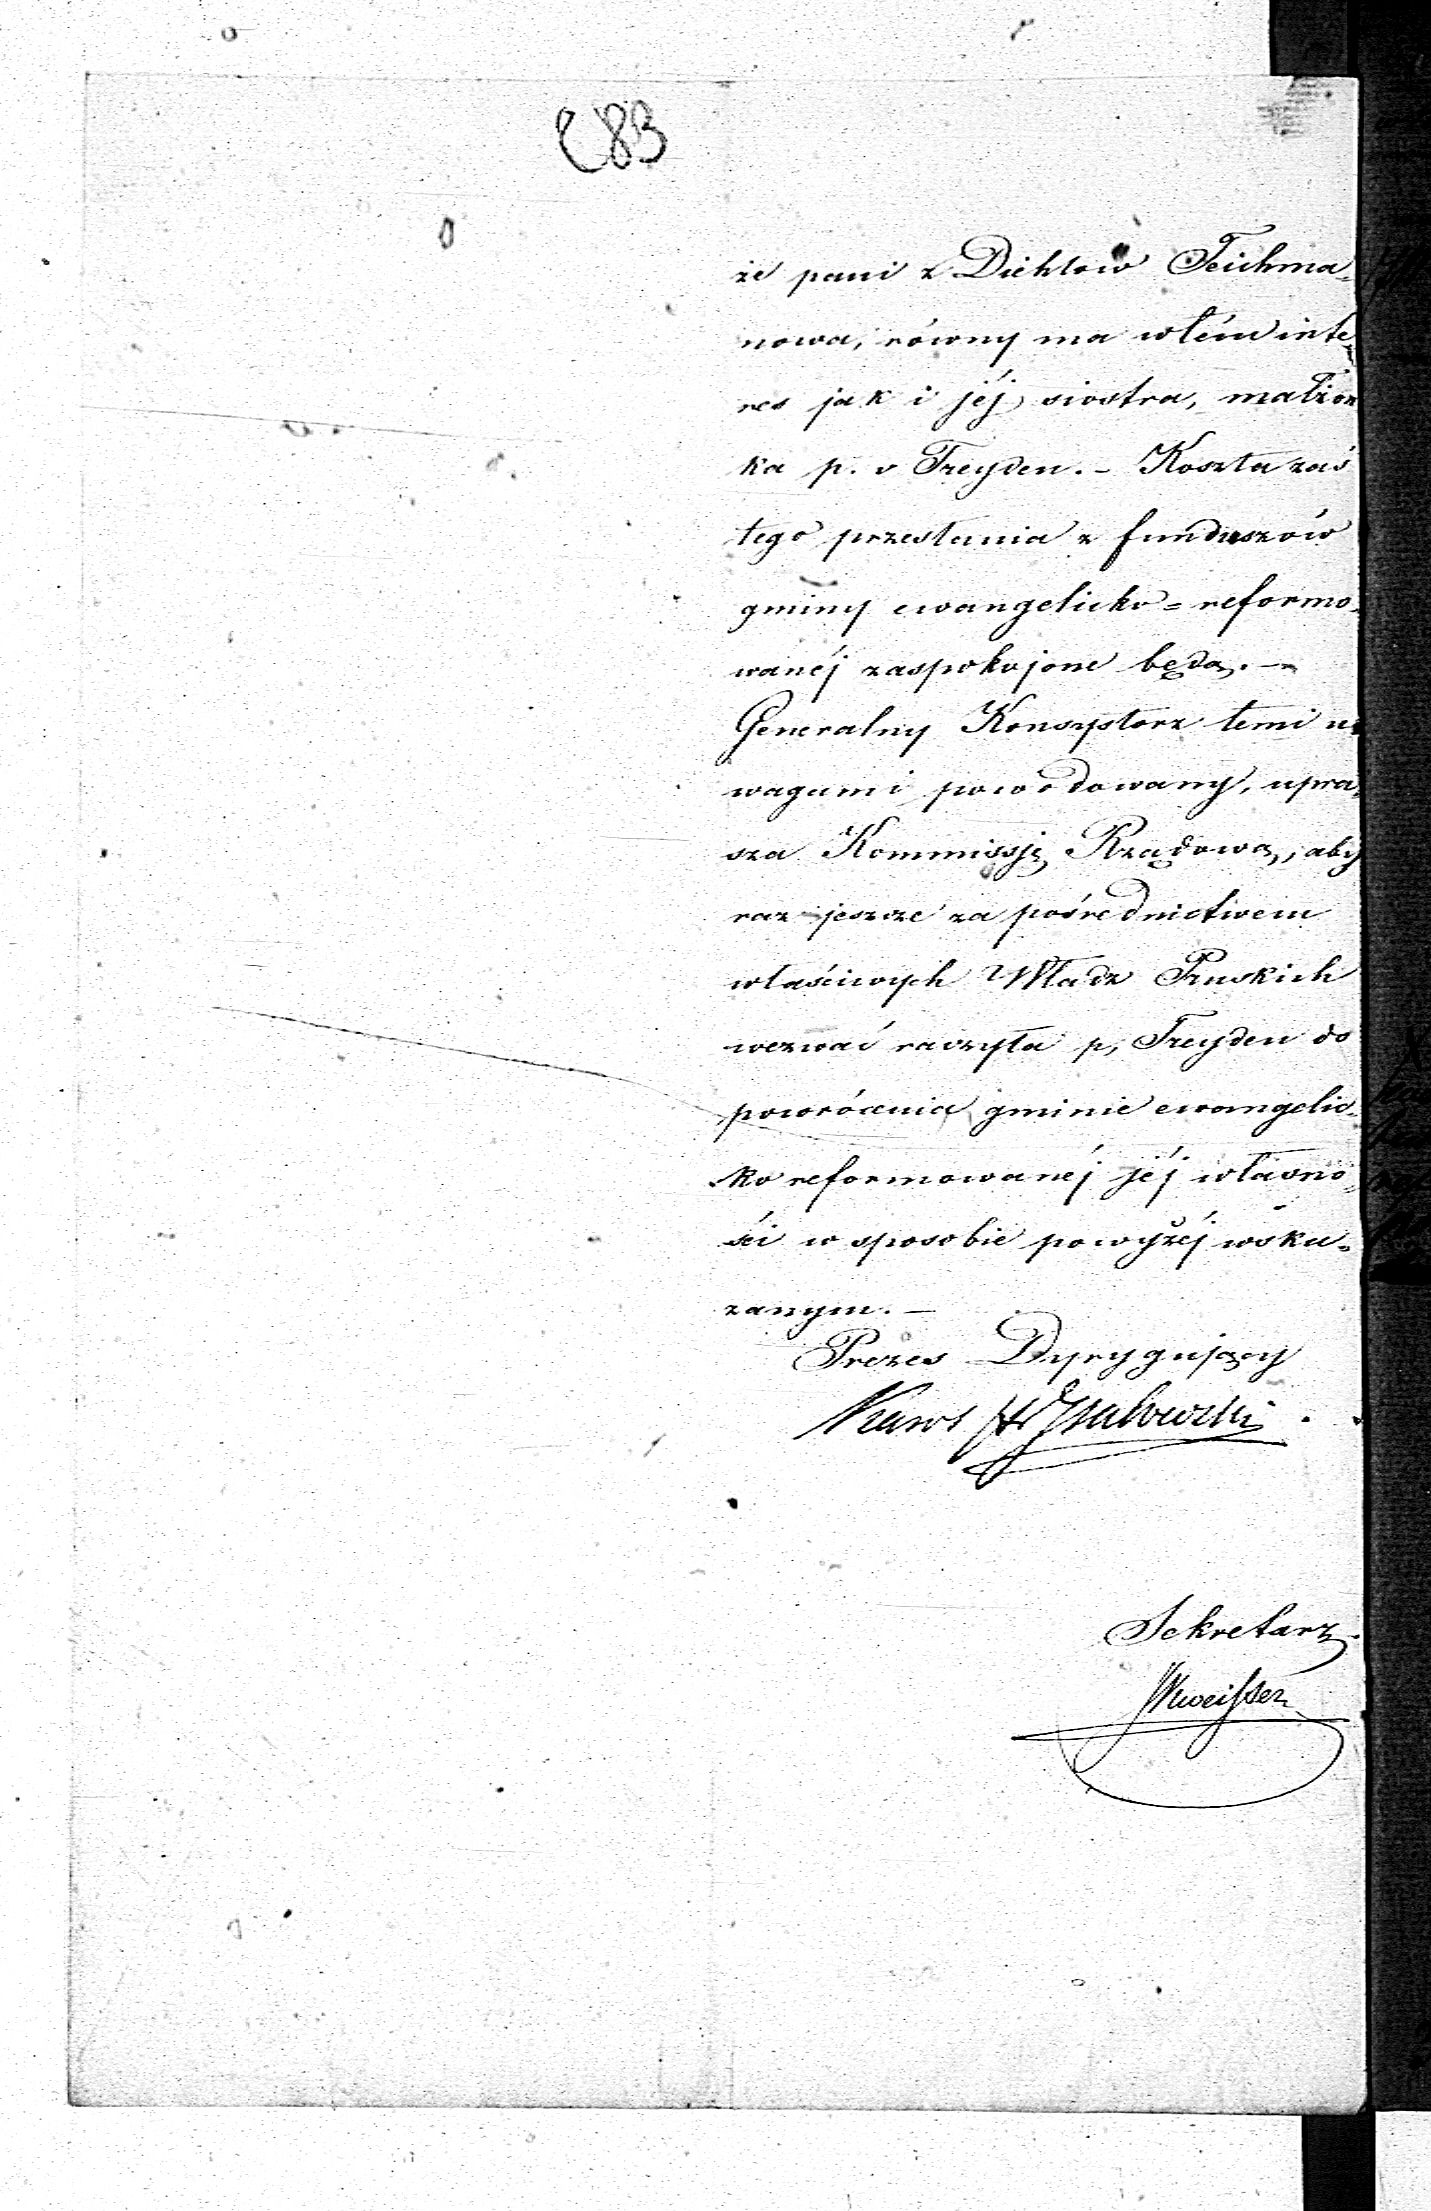 C83
że pani z Diehlow Teichma-
nowa, równy ma w tém inte-
res jak i jéj siostra, małżon
ka p. v Treyden. - Koszta zaś
tego przesłania z funduszów
gminy ewangelicko = reformo-
wanéj zaspokojone będą. -
Generalny Konsystorz temi u-
wagami powodowany, upra-
sza Kommissję Rządową, aby
raz jeszcze za pośrednictwem
właściwych Władz Pruskich
wezwać raczyła p, Treyden do
powrócenia gminie ewangelic-
ko reformowanéj jéj własno-
ści w sposobie powyżéj wska-
zanym. -
Prezes Dyrygujący
Sekretarz